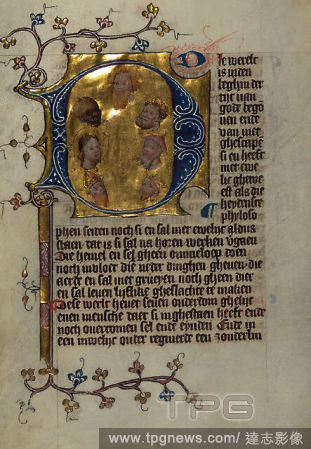 Die werelt
is inden
beghin der
tijt van
gode bego
nen ende
van niet
ghescapē
si en heeft
niet ewe
lic ghewe
est als die
heydensce
phyloso
phen seiden noch si en sal niet ewelijc aldus
staen dat is si sal na horen werken vgaen
Die hemel en sel gheen ommeloep doen
noch invloet die neder dinghen gheuen die
aerde en sal niet groeyen noch gheen dier
en sal leuen lijflike gheslachte te maken
Dese werelt heuet seuen ouderdom ghelijc
enen mensche daer si in ghestaen heeft ende
noch ouercomen sel ende eynden Ende in
een iuwelijc ouder regneerde een zonderlin
TPG
www.tpgnews.com/達志影像